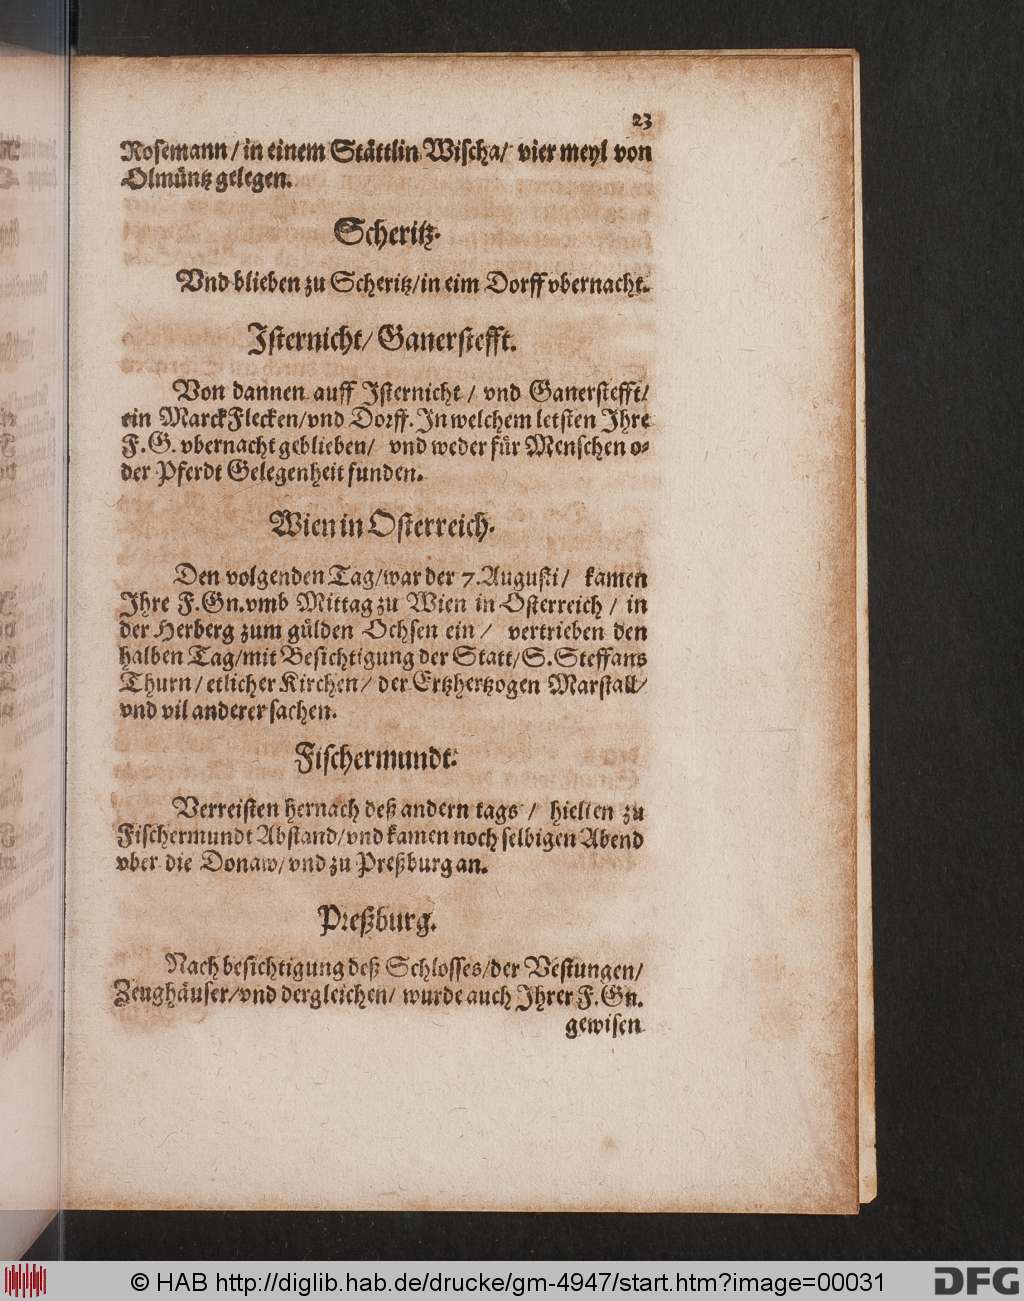 23
Rosemann / in einem Stättlin Wischa / vier meyl von
Olmüntz gelegen.
Scheritz.
Vnd blieben zu Scheritz / in eim Dorff vbernacht.
Isternicht / Ganerstefft.
Von dannen auff Isternicht / vnd Ganerstefft /
ein MarckFlecken / vnd Dorff. In welchem letsten Ihre
F. G. vbernacht geblieben / vnd weder für Menschen o-
der Pferdt Gelegenheit funden.
Wien in Osterreich.
Den volgenden Tag / war der 7. Augusti / kamen
Ihre F. Gn. vmb Mittag zu Wien in Osterreich / in
der Herberg zum gülden Ochsen ein / vertrieben den
halben Tag / mit Besichtigung der Statt / S. Steffans
Thurn / etlicher Kirchen / der Ertzhertzogen Marstall /
vnd vil anderer sachen.
Fischermundt.
Verreisten hernach deß andern tags / hielten zu
Fischermundt Abstand / vnd kamen noch selbigen Abend
vber die Donaw / vnd zu Preßburg an.
Preßburg.
Nach besichtigung deß Schlosses / der Vestungen /
Zeughäuser / vnd dergleichen / wurde auch Ihrer F. Gn.
gewisen
© HAB http://diglib.hab.de/drucke/gm-4947/start.htm?image=00031
DFG